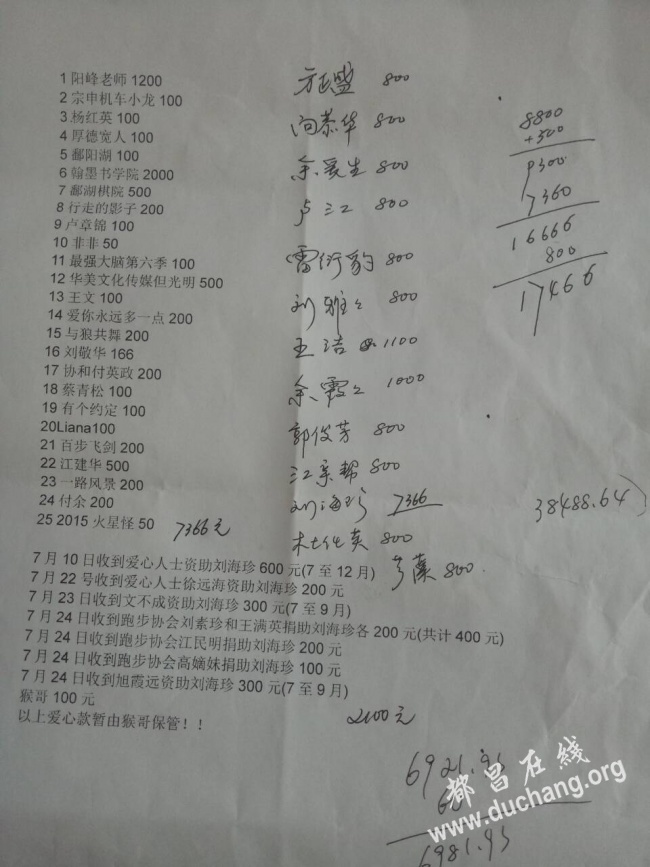 1 阳峰老师 1200
2 宗申机车小龙 100
3.杨红英 100
4 厚德宽人 100
5 鄱阳湖 100
6 翰墨书学院 2000
7 鄱湖棋院 500
8 行走的影子 200
9 卢章锦 100
10 非非 50
11 最强大脑第六季 100
12 华美文化传媒但光明 500
13 王文 100
14 爱你永远多一点 200
15 与狼共舞 200
16 刘敬华 166
17 协和付英政 200
18 蔡青松 100
19 有个约定 100
20Liana100
21 百步飞剑 200
22 江建华 500
23 一路风景 200
24 付余 200
25 2015 火星怪 50 7366元
800
向恭华 800
余爱生 800
卢三江 800
雷衍豹 800
刘雅 800
王洁 1100
余霞 1000
郭俊芳 800
江亲帮 800
刘海珍 7366
800
800.
8800
+500
9300
7360
16666
800
17466
38488.64
7 月 10 日收到爱心人士资助刘海珍 600 元(7 至 12 月)
7 月 22 号收到爱心人士徐远海资助刘海珍 200 元
7 月 23 日收到文不成资助刘海珍 300 元(7 至 9 月)
7 月 24 日收到跑步协会刘素珍和王满英捐助刘海珍各 200 元(共计 400 元)
7 月 24 日收到跑步协会江民明捐助刘海珍 200 元
7 月 24 日收到跑步协会高嫡妹捐助刘海珍 100 元
7 月 24 日收到旭霞远资助刘海珍 300 元(7 至 9 月)
猴哥 100 元
以上爱心款暂由猴哥保管！！
2100元
6921.95
6981.95
都昌在线
www.duchang.org